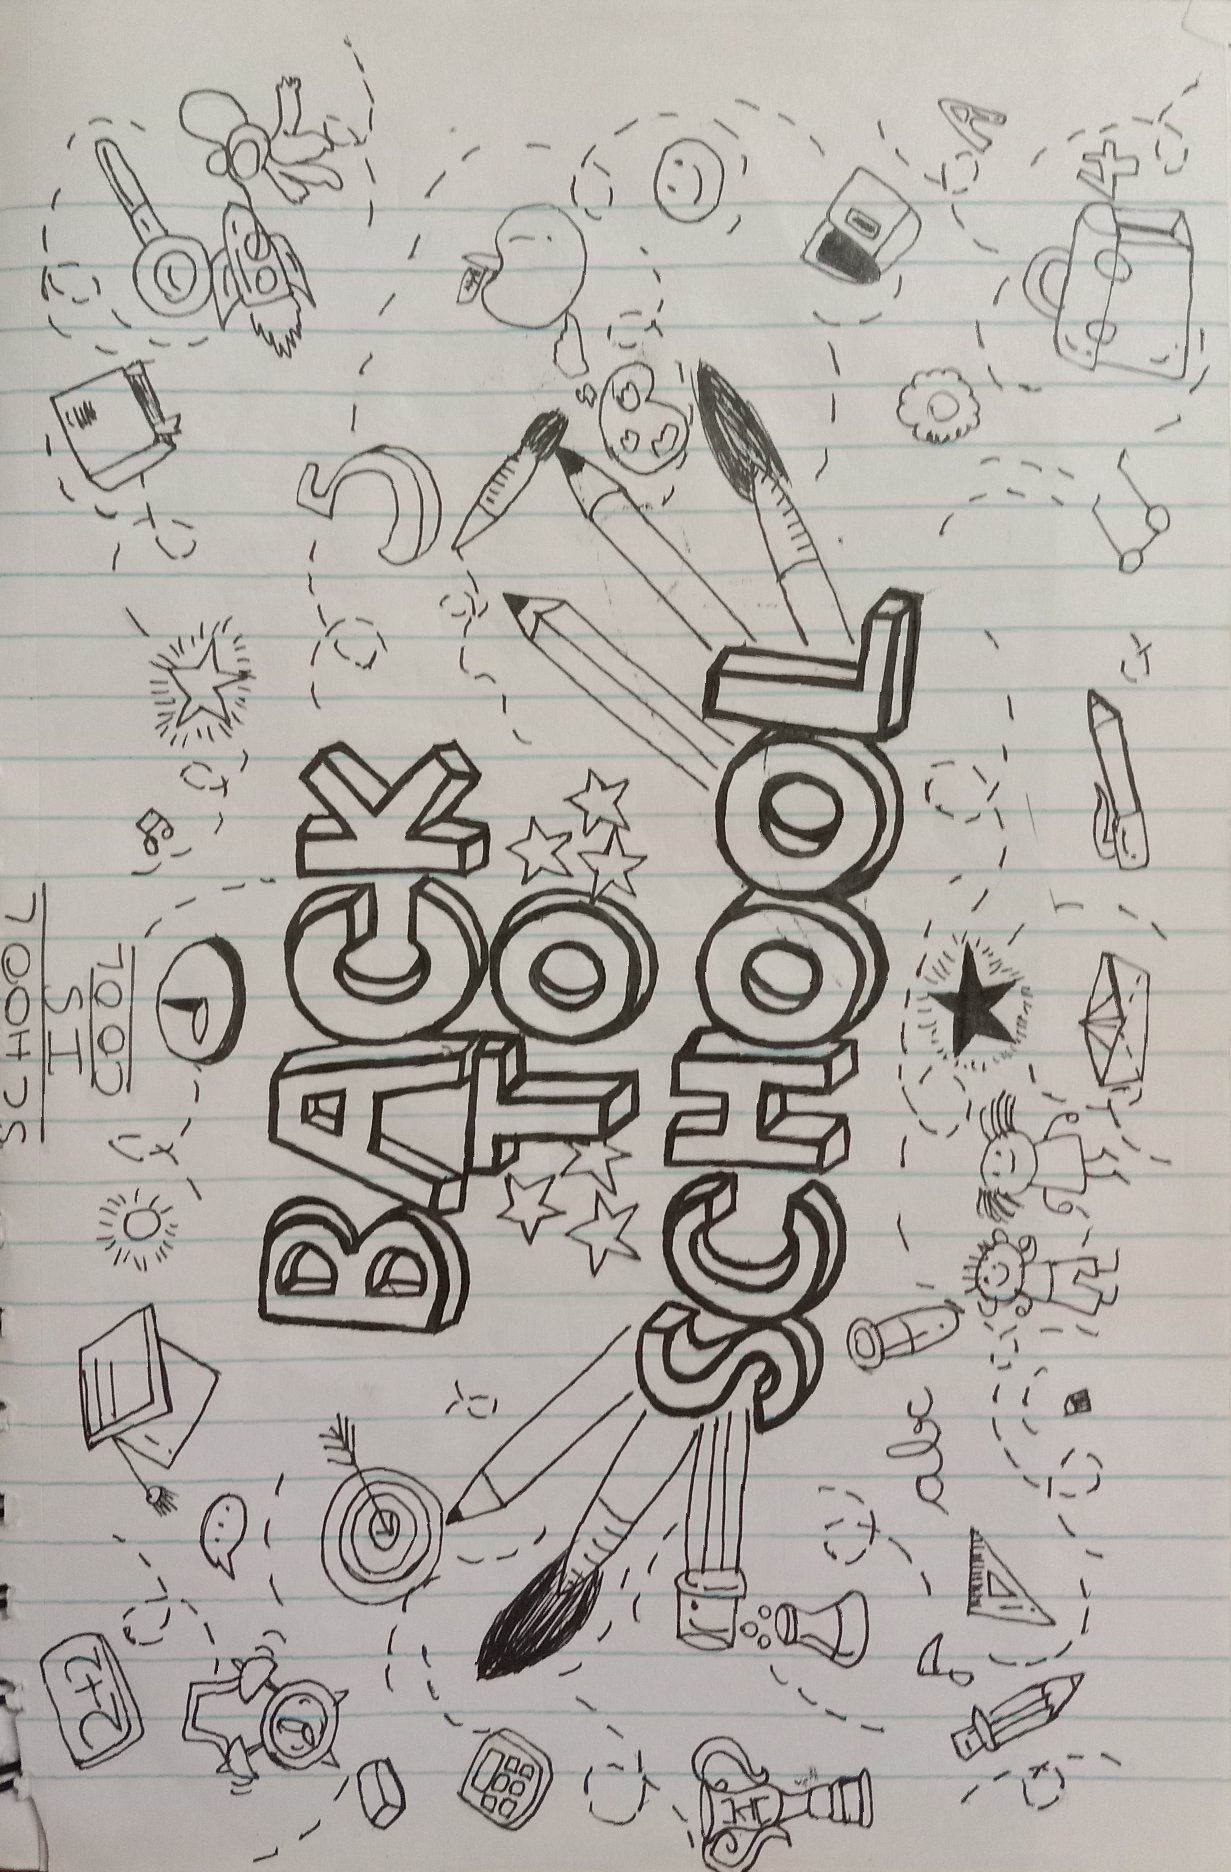 SCHOOL
IS
COOL
2+2
BACK
5
TO
SCHOOL
abc
A
4